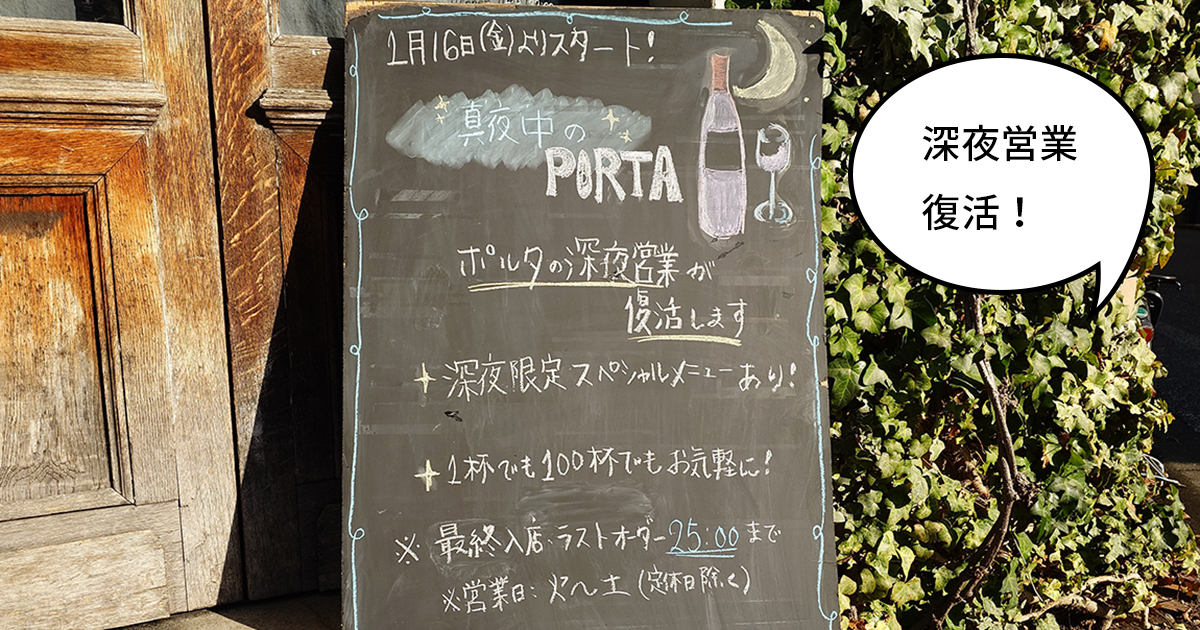 1月16日(金)よりスタート!
真夜中の
PORTA
ポルタの深夜営業が
復活します
深夜限定スペシャルメニューあり!
1杯でも100杯でもお気軽に!
※最終入店・ラストオーダー25:00まで
※営業日:火〜土(定休日除く)
深夜営業
復活！